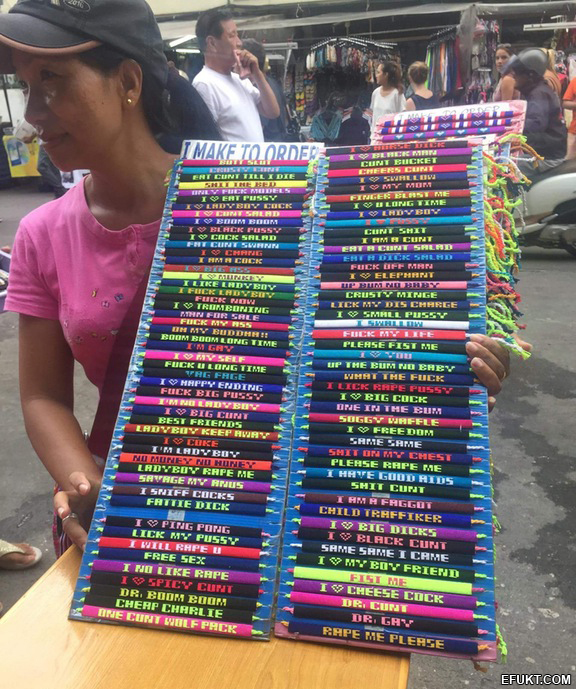 I MAKE TO ORDER
BUTT SLUT
CRUSTY CUNT
EAT CUNT TILL I DIE
SHIT THE BED
ONLY FUCK MODELS
I ♡ EAT PUSSY
I ♡ LADYBOY COCK
I ♡ CUNT SALAD
I ♡ BOOM BOOM
I ♡ BLACK PUSSY
I ♡ COCK SALAD
FAT CUNT SWANN
I ♡ CHANG
I AM A COCK
I ♡ BIG ASS
I ♡ MONKEY
I LIKE LADYBOY
I FUCK LADYBOY
FUCK NOW
I ♡ TROMBONING
MAN FOR SALE
FUCK MY ASS
OH MY BUDDHA!!
BOOM BOOM LONG TIME
I'M GAY
I ♡ MY SELF
FUCK U LONG TIME
VAG FACE
I ♡ HAPPY ENDING
FUCK BIG PUSSY
I'M NO LADYBOY
I ♡ BIG CUNT
BEST FRIENDS
LADYBOY KEEP AWAY
I ♡ COKE
I'M LADYBOY
NO MONEY NO HONEY
LADYBOY RAPE ME
SAVAGE MY ANUS
I SNIFF COCKS
FATTIE DICK
I ♡ PING PONG
LICK MY PUSSY
I WILL RAPE U
FREE SEX
I NO LIKE RAPE
I ♡ SPICY CUNT
DR. BOOM BOOM
CHEAP CHARLIE
ONE CUNT WOLF PACK
I ♡ HORSE DICK
I ♡ BLACK MAN
CUNT BUCKET
CHEERS CUNT
I ♡ SWALLOW
I ♡ MY MOM
FINGER BLAST ME
I ♡ U LONG TIME
I ♡ LADYBOY
I ♡ PUSSY
CUNT SHIT
I AM A CUNT
EAT A CUNT SALAD
EAT A DICK SALAD
FUCK OFF MAN
I ♡ ELEPHANT
UP BUM NO BABY
CRUSTY MINGE
LICK MY DISCHARGE
I ♡ SMALL PUSSY
I SWALLOW
FUCK MY LIFE
PLEASE FIST ME
I ♡ YOU
UP THE BUM NO BABY
WHAT THE FUCK
I LICK RAPE PUSSY
I ♡ BIG COCK
ONE IN THE BUM
SOGGY WAFFLE
I ♡ FREEDOM
SAME SAME
SHIT ON MY CHEST
PLEASE RAPE ME
I HAVE GOOD AIDS
SHIT CUNT
I AM A FAGGOT
CHILD TRAFFIKER
I ♡ BIG DICKS
I ♡ BLACK CUNT
SAME SAME I CAME
I ♡ MY BOY FRIEND
FIST ME
I ♡ CHEESE COCK
DR. CUNT
DR. GAY
RAPE ME PLEASE
EFUKT.COM